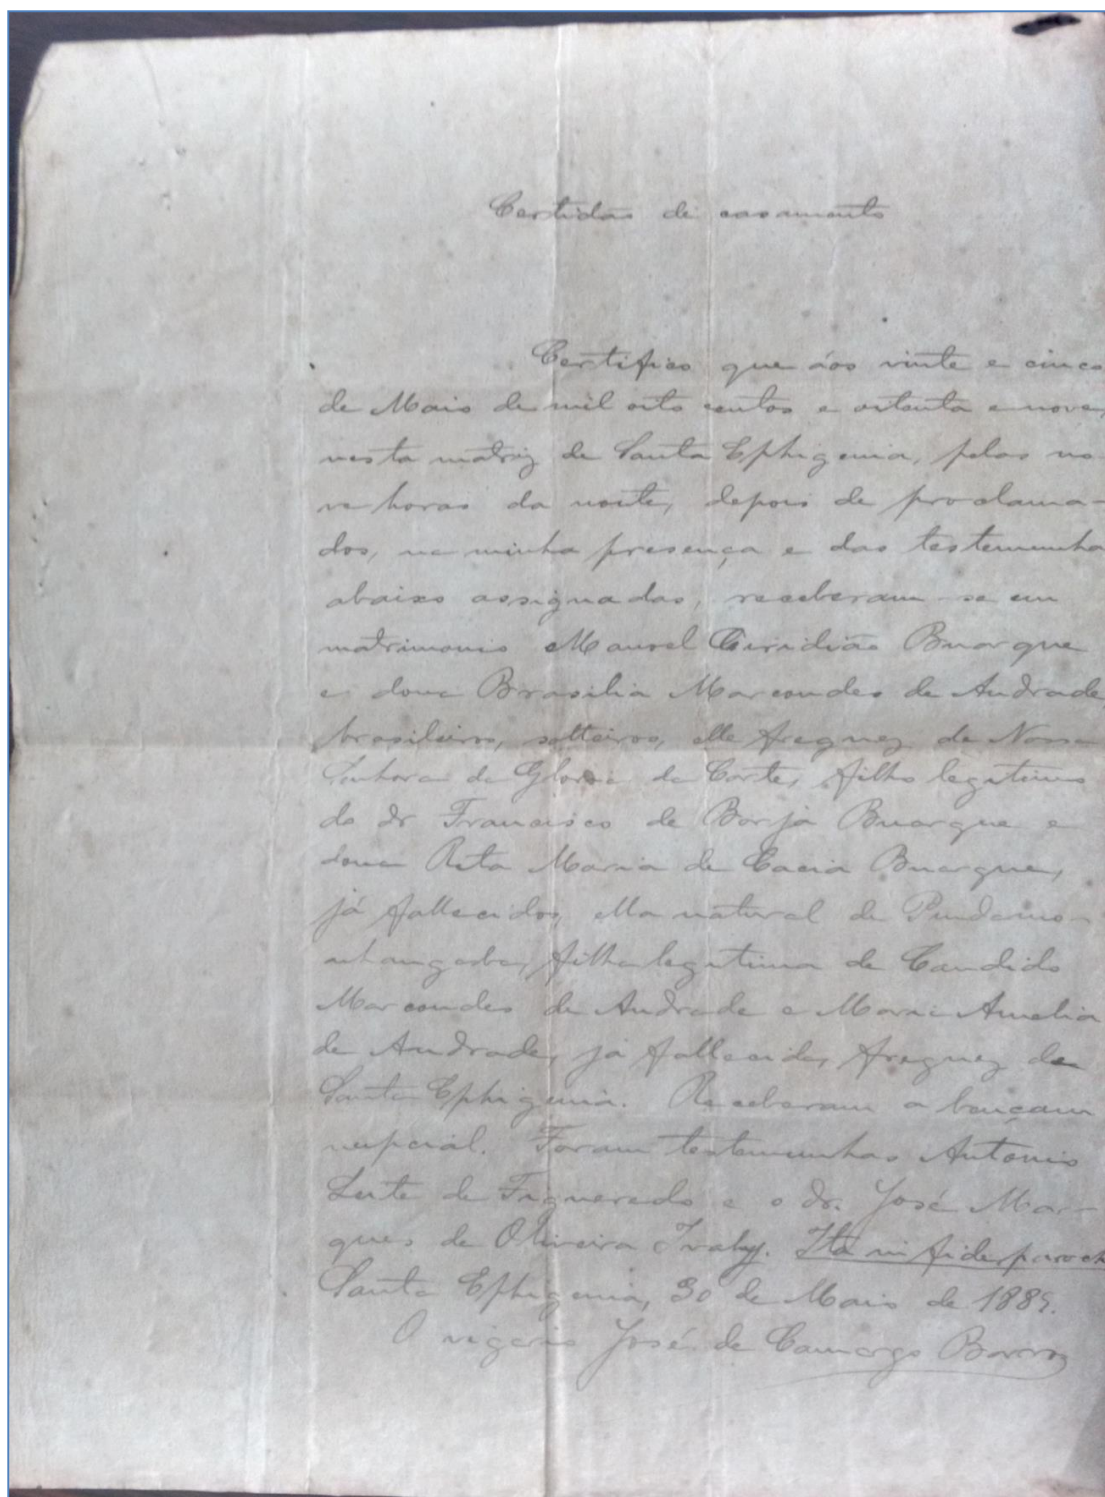 Certidão de casamento
Certifico que áos vinte e cinco
de Maio de mil oito centos e oitenta e nove,
nesta matriz de Santa Ephigenia, pelas no-
ve horas da noite, depois de proclama-
dos, na minha presença e das testemunhas
abaixo assignadas, receberam-se em
matrimonio Manoel Ciridião Buarque
e dona Brasilia Marcondes de Andrade
brasileiros, solteiros, elle freguez de Nossa
Senhora da Gloria da Corte, filho legitimo
do dr Francisco de Borja Buarque e
dona Rita Maria de Cacia Buarque,
já fallecidos, ella natural de Pindamo-
nhangaba, filha legitima de Candido
Marcondes de Andrade e Maria Amelia
de Andrade, já fallecida, freguez de
Santa Ephigenia. Receberam a bençam
nupcial. Foram testemunhas Antonio
Leite de Figueredo e o dr. José Mar-
ques de Oliveira Ivahy. Ita in fide paroch
Santa Ephigenia, 30 de Maio de 1889.
O vigario José de Camargo Barros